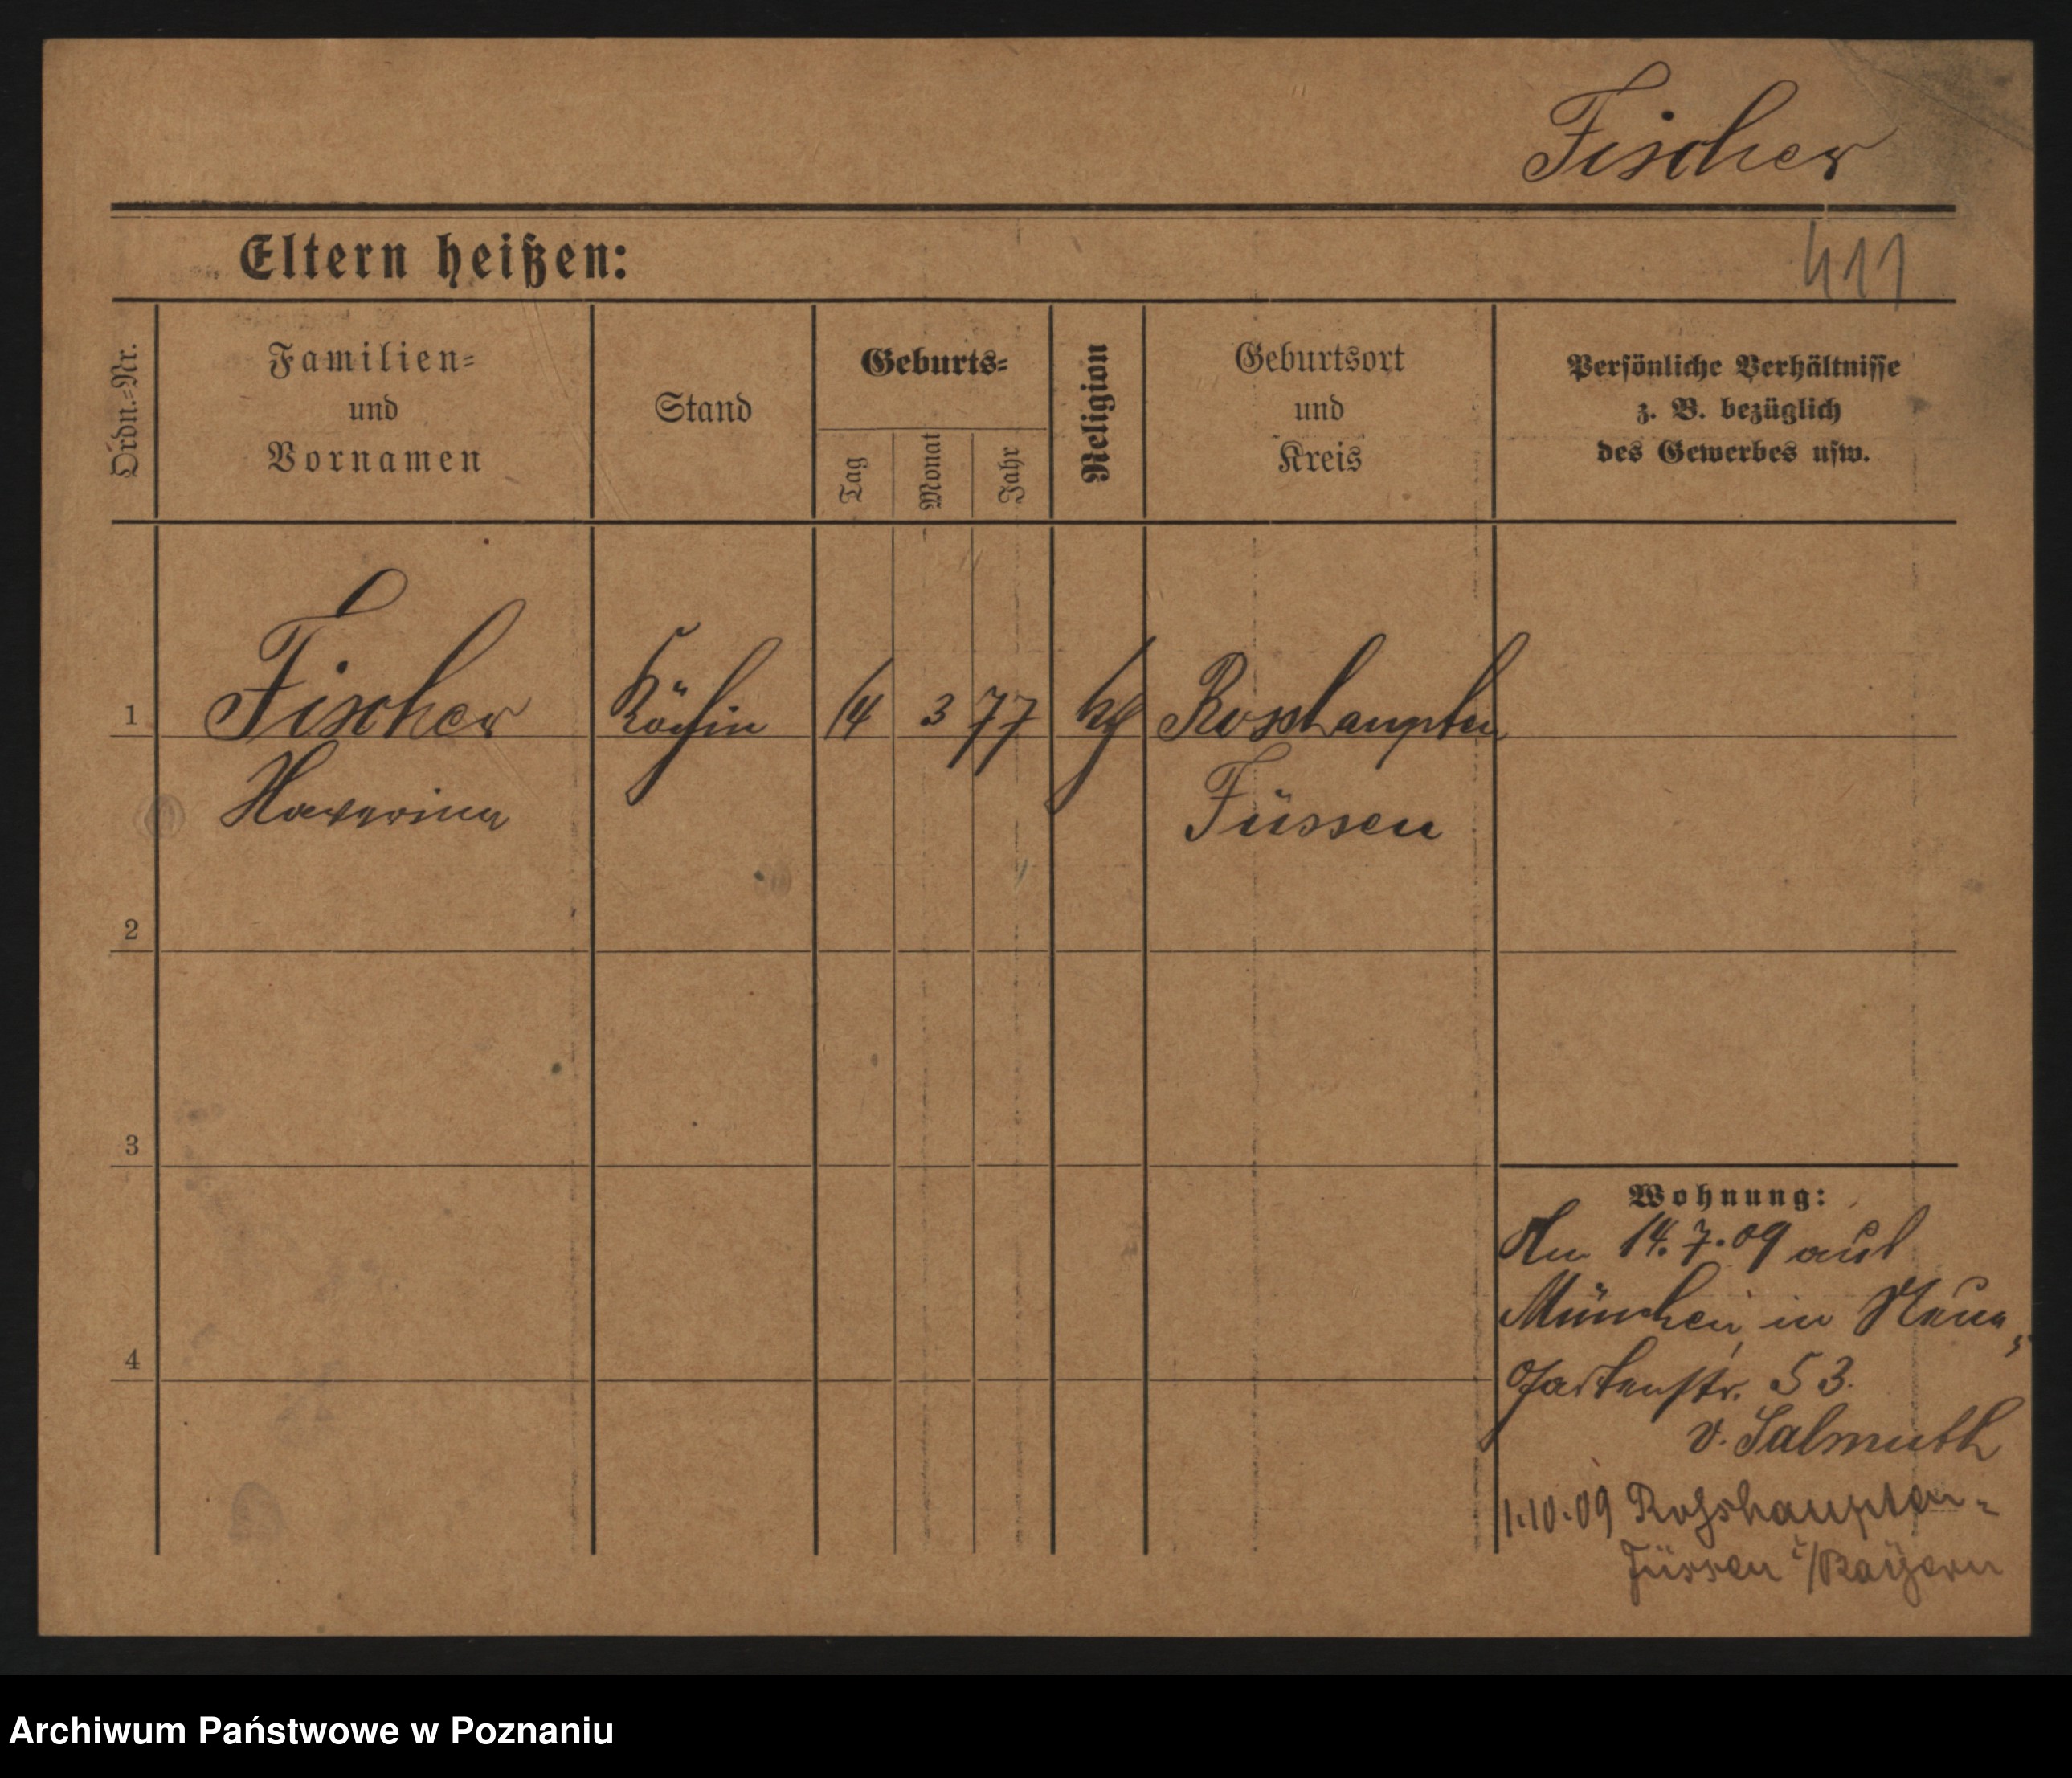 Fischer
Eltern heißen:
411
Ordn.=Nr.
Familien=
und
Vornamen
Stand
Geburts=
Tag
Monat
Jahr
Religion
Geburtsort
und
Kreis
Persönliche Verhältnisse
z. B. bezüglich
des Gewerbes usw.
1
Fischer
Köchin
14
3
77
Rosshaupten
Füssen
2
3
4
Wohnung:
14.7.09 aus
München in
Gartenstr. 53.
v. Salmuth
1.10.09 Rosshaupten-
Füssen i/Bayern
Archiwum Państwowe w Poznaniu